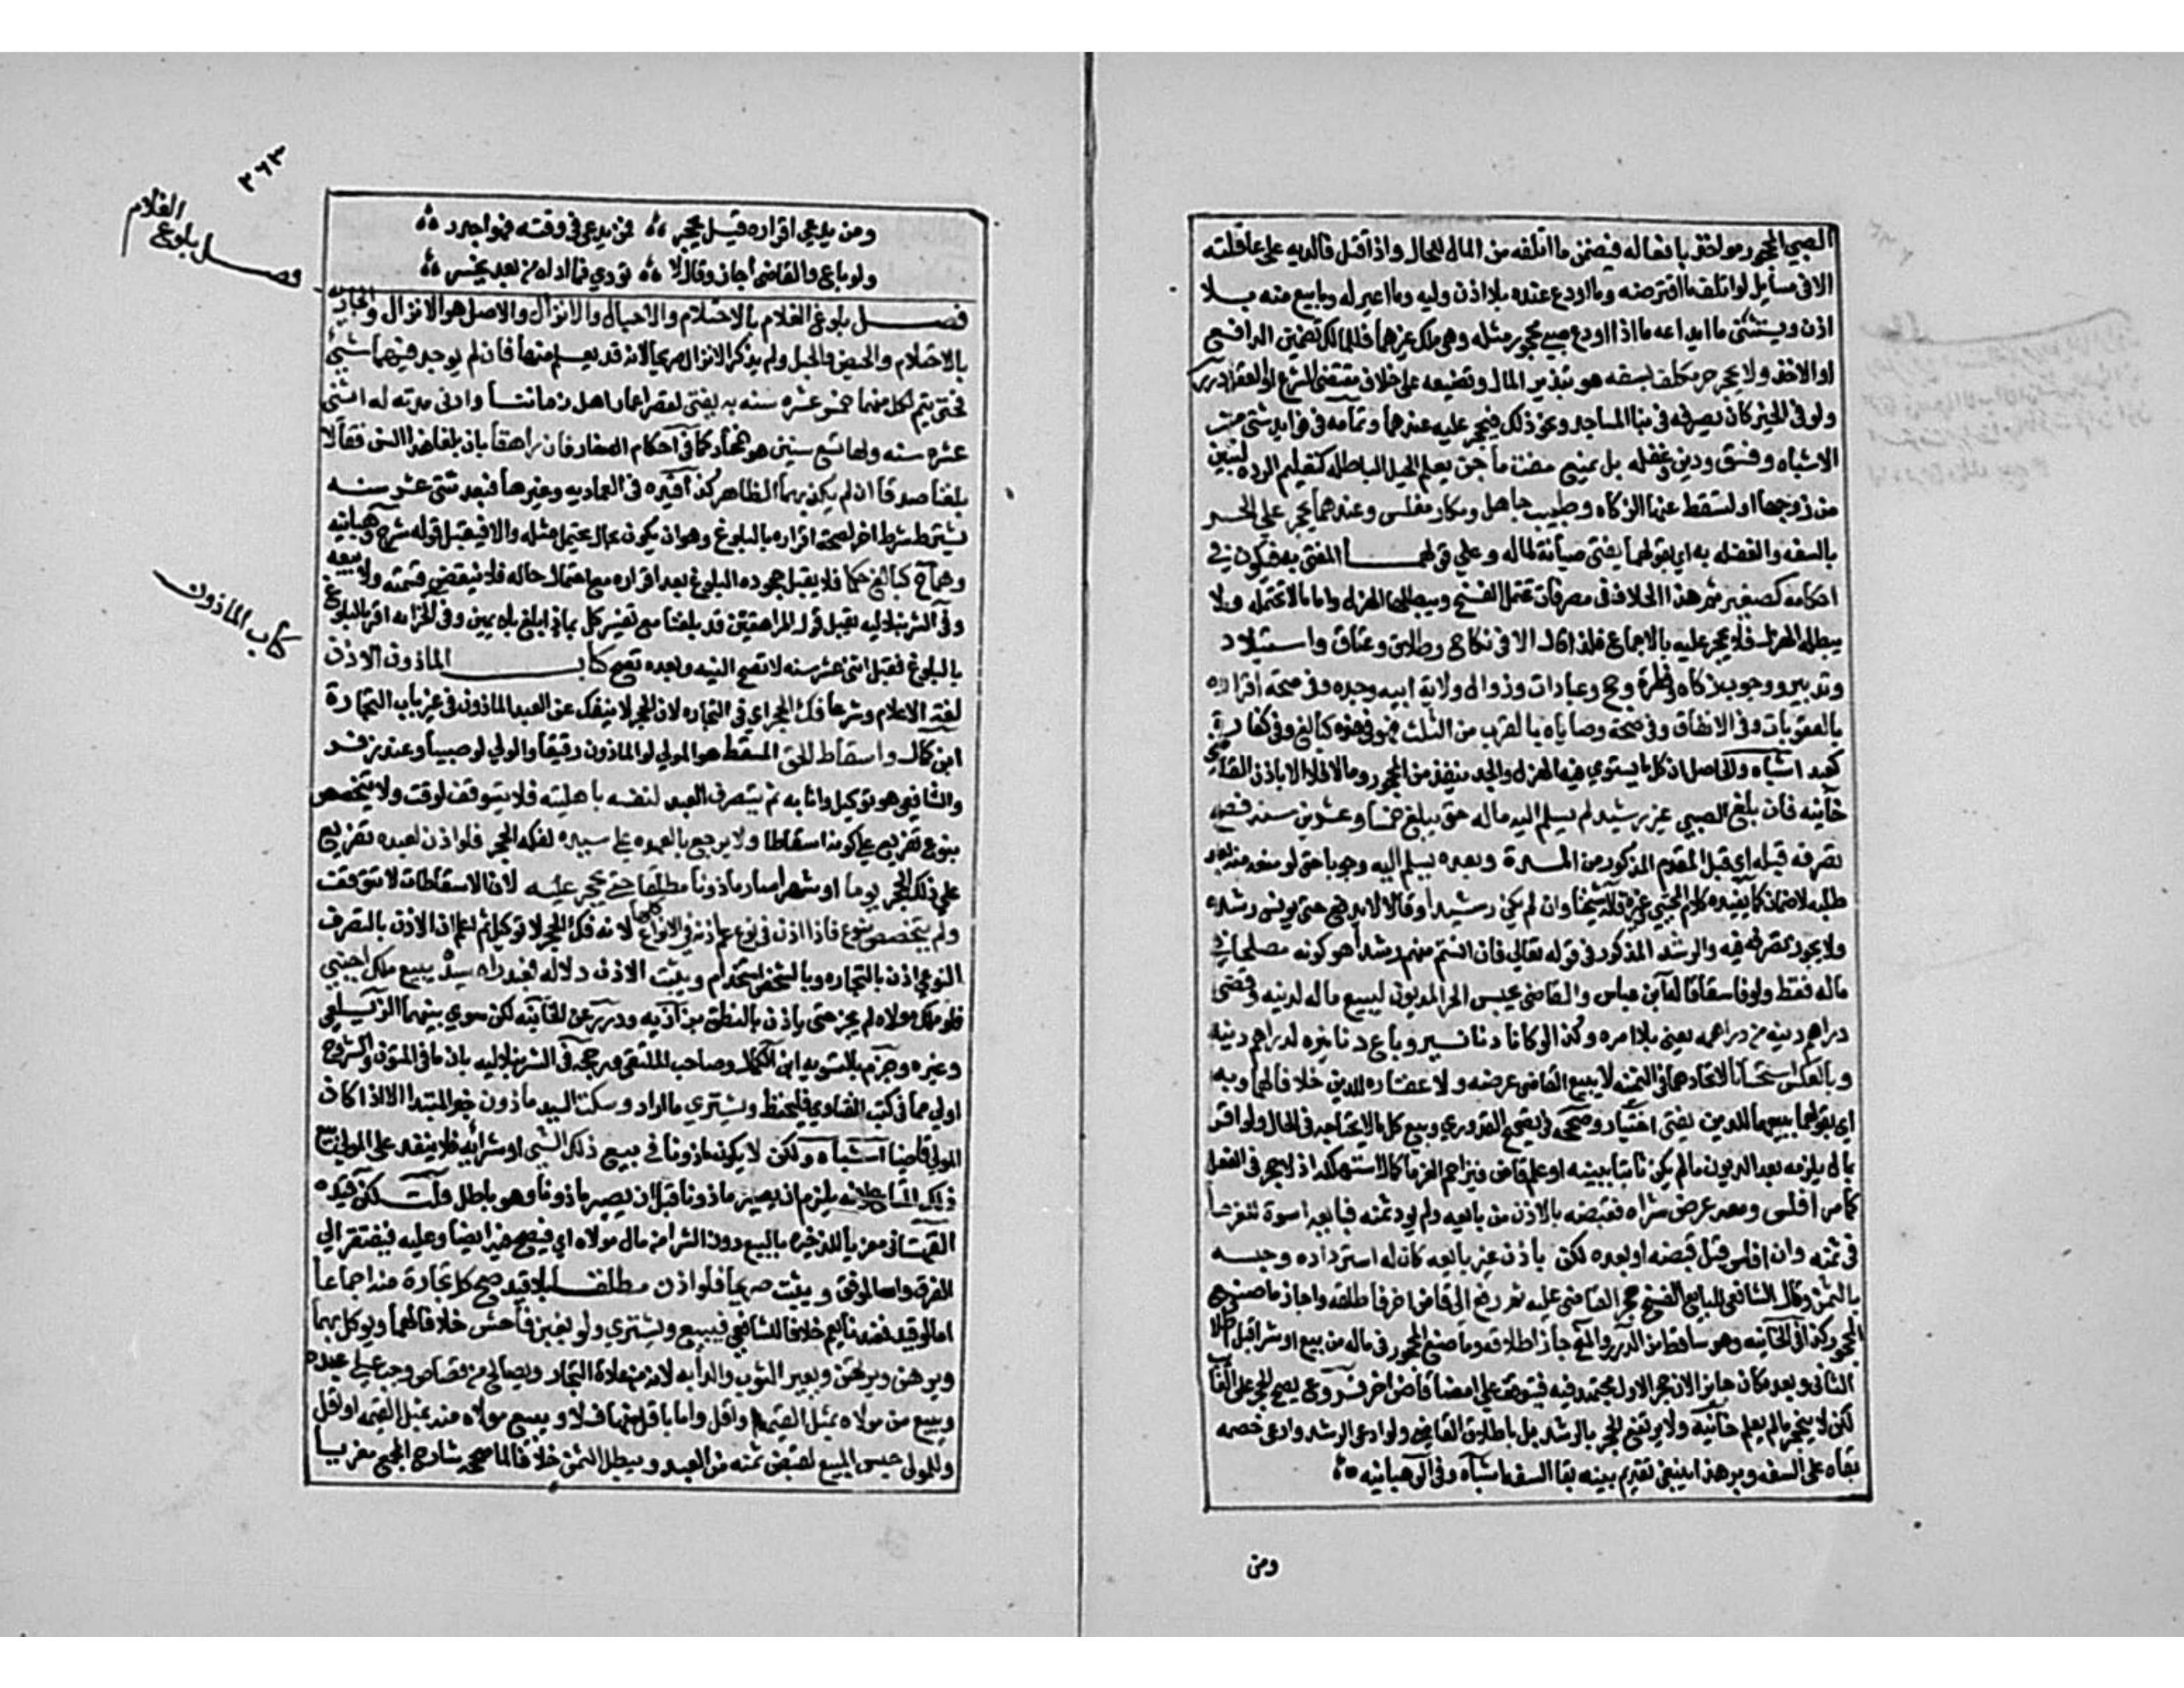 الصبي المحجور مواخذ بافعاله فيضمن ما اتلفه من المال للحال واذا قتل فالديه على عاقلته
الا في مسايل لو اتلف ما اقترضه وما اودع عنده بلا اذن وليه وما اعير له وما بيع منه بلا
اذن ويستثنى ما ايداعه ما اذا اودع صبي محجور مثله وهي ملك غيرهما فللمالك تضمين الدافع
او الاخذ ولا يحجر حر مكلف بسفه هو تبذير المال وتضييعه على خلاف مقتضى الشرع او العقل درر
ولو في الخير كان يصرفه في بنا المساجد ونحو ذلك فيحجر عليه عندهما وتمامه في فوايد شتى من
الاشباه وفسق ودين وغفله بل يمنع مفت ماجن يعلم الحيل الباطله كتعليم الرده لتبين
من زوجها او لتسقط عنها الزكاه وطبيب جاهل ومكار مفلس وعندهما يحجر على الحر
بالسفه والغفله به اي بقولهما يفتى صيانة لماله وعلى قولهما المفتى به فيكون في
احكامه كصغير ثم هذا الخلاف في تصرفات تحتمل الفسخ ويبطلها الهزل واما ما لا تحتمله ولا
يبطله الهزل فلا يحجر عليه بالاجماع فلذا قال الا في نكاح وطلاق وعتاق واستيلاد
وتدبير ووجوب زكاه وفطرة وحج وعبادات وزوال ولاية ابيه وجده وفي صحة اقراره
بالعقوبات وفي الانفاق وفي صحة وصاياه بالقرب من الثلث فهو في هذه كبالغ وفي كفارة
كعبد اشباه والحاصل ان كل ما يستوي فيه الهزل والجد ينفذ من المحجور وما لا فلا الا باذن القاضي
خانيه فان بلغ الصبي غير رشيد لم يسلم اليه ماله حتى يبلغ خمسا وعشرين سنه فصح
تصرفه قبله اي قبل المقدم المذكور من المدة وبعده يسلم اليه وجوبا حتى لو منعه منه بعد
طلبه لا ضمان كما يفيده كلام المجتبى وغيره قاله شيخنا وان لم يكن رشيدا وقالا لا يدفع حتى يونس رشده
ولا يجوز تصرفه فيه والرشد المذكور في قوله تعالى فان انستم منهم رشدا هو كونه مصلحا في
ماله فقط ولو فاسقا قاله ابن عباس والقاضي يحبس الحر المديون ليبيع ماله لدينه وقضى
دراهم دينه من دراهمه يعني بلا امره وكذا لو كانا دنانير وباع دنانيره لدراهم دينه
وبالعكس استحسانا لاتحادهما في الثمنيه لا يبيع القاضي عرضه ولا عقاره للدين خلافا لهما وبه
اي بقولهما ببيعهما للدين يفتى اختيار وصححه في تصحيح القدوري وبيع كل ما لا يحتاجه في الحال ولو اقر
بمال يلزمه بعد الديون ما لم يكن ثابتا ببينه او علم قاض فيزاحم الغرما كمال استهلكه اذ لا حجر في الفعل
كما مر افلس ومعه عرض شراه فقبضه بالاذن من بايعه ولم يود ثمنه فبايعه اسوة للغرما
في ثمنه وان افلس قبل قبضه او بعده لكن باذن غير بايعه كان له استرداده وحبسه
بالثمن وقال الشافعي للبايع الفسخ حجر القاضي عليه ثم رفع الى قاض اخر فاطلقه واجاز ما صنع
المحجور كذا في الخانيه وهو ساقط من الدرر والمنح جاز اطلاقه وما صنع المحجور في ماله من بيع او شرا قبل اطلاق
الثاني وبعده كان جايزا لان حجر الاول مجتهد فيه فيتوقف على امضا قاض اخر فروع يصح الحجر على الغايب
لكن لا ينحجر ما لم يعلم خانيه ولا يرتفع الحجر بالرشد بل باطلاق القاضي ولو ادعى الرشد وادعى خصمه
بقاه على السفه وبرهنا ينبغي تقديم بينه بقا السفه اشباه وفي الوهبانيه
ومن
٣٦٣
فصل بلوغ الغلام
كتاب الماذون
ومن يدعي اقراره قبل يحجر فمن يدعي في وقته فهو اجدر
ولو باع والقاضي اجاز وقال لا تودي فما اداه من بعد يخسر
فصل بلوغ الغلام بالاحتلام والاحبال والانزال والاصل هو الانزال والجاريه
بالاحتلام والحيض والحبل ولم يذكر الانزال صريحا لانه قد يعلم منها فان لم يوجد فيهما شيئ
فحتى يتم لكل منهما خمس عشره سنه به يفتى لقصر اعمار اهل زماننا وادنى مدته له اثنتي
عشره سنه ولها تسع سنين هو المختار كما في احكام الصغار فان راهقا بان بلغا هذا السن فقالا
بلغنا صدقا ان لم يكذبهما الظاهر كذا قيده في العماديه وغيرها فبعد ثنتي عشر سنه
يشترط شرط اخر لصحة اقراره بالبلوغ وهو ان يكون بحال يحتلم مثله والا لا يقبل قوله شرح وهبانيه
وهما ح كبالغ حكما فلا يقبل جحوده البلوغ بعد اقراره مع احتمال حاله فلا تنقض قسمته ولا بيعه
وفي الشرنبلاليه يقبل قول المراهقين قد بلغنا مع تفسير كل بماذا بلغ بلا يمين وفي الخزانه اقر بالبلوغ
بالبلوغ فقبل اثني عشر سنه لا تصح البينه وبعده تصح كتاب الماذون الاذن
لغة الاعلام وشرعا فك الحجر اي في التجاره لان الحجر لا ينفك عن العبد الماذون في غير باب التجارة
ابن كمال واسقاط للحق المسقط هو المولى لو الماذون رقيقا والولي لو صبيا وعند زفر
والشافعي هو توكيل وانابه ثم يتصرف العبد لنفسه باهليته فلا يتوقف لوقت ولا يتخصص
بنوع تفريع على كونه اسقاطا ولا يرجع بالعهده على سيده لفكه الحجر فلو اذن لعبده تفريع
على فك الحجر يوما او شهرا صار ماذونا مطلقا حتى يحجر عليه لان الاسقاطات لا تتوقت
ولم يتخصص بنوع فاذا اذن في نوع عم اذنه في الانواع كلها لانه فك الحجر لا توكيل ثم اعلم ان الاذن بالتصرف
النوعي اذن بالتجاره وبالشخصي استخدام ويثبت الاذن دلاله فعبد راه سيده يبيع ملك اجنبي
فلو ملك مولاه لم يجز حتى ياذن بالنطق بزازيه ودرر عن الخانيه لكن سوى بينهما الزيلعي
وغيره وجزم بالتسويه ابن الكمال وصاحب الملتقى ورجحه في الشرنبلاليه بان ما في المتون والشروح
اولى مما في كتب الفتاوي فليحفظ ويشتري ما اراد وسكت السيد ماذون خبر المبتدا الا اذا كان
المولى قاضيا اشباه ولكن لا يكون ماذونا في بيع ذلك الشي او شرائه فلا ينفذ على المولى بيع
ذلك المتاع لانه يلزم ان يصير ماذونا قبل ان يصير ماذونا وهو باطل قلت لكن قيده
القهستاني معزيا للذخيره بالبيع دون الشرا من مال مولاه اي فيصح فيه ايضا وعليه فيفتقر الى
الفرق والله الموفق ويثبت صريحا فلو اذن مطلقا بلا قيد صح كل تجارة منه اجماعا
اما لو قيد فعندنا يعم خلافا للشافعي فيبيع ويشتري ولو بغبن فاحش خلافا لهما ويوكل بهما
ويرهن ويرتهن ويعير الثوب والدابه لانه من عادة التجار ويصالح من قصاص وجب على عبده
ويبيع من مولاه بمثل القيمه واقل واما باقل منها فلا ويبيع مولاه منه بمثل القيمه او اقل
وللمولى حبس المبيع لقبض ثمنه من العبد ويبطل الثمن خلافا لما صححه شارح المجمع معزيا